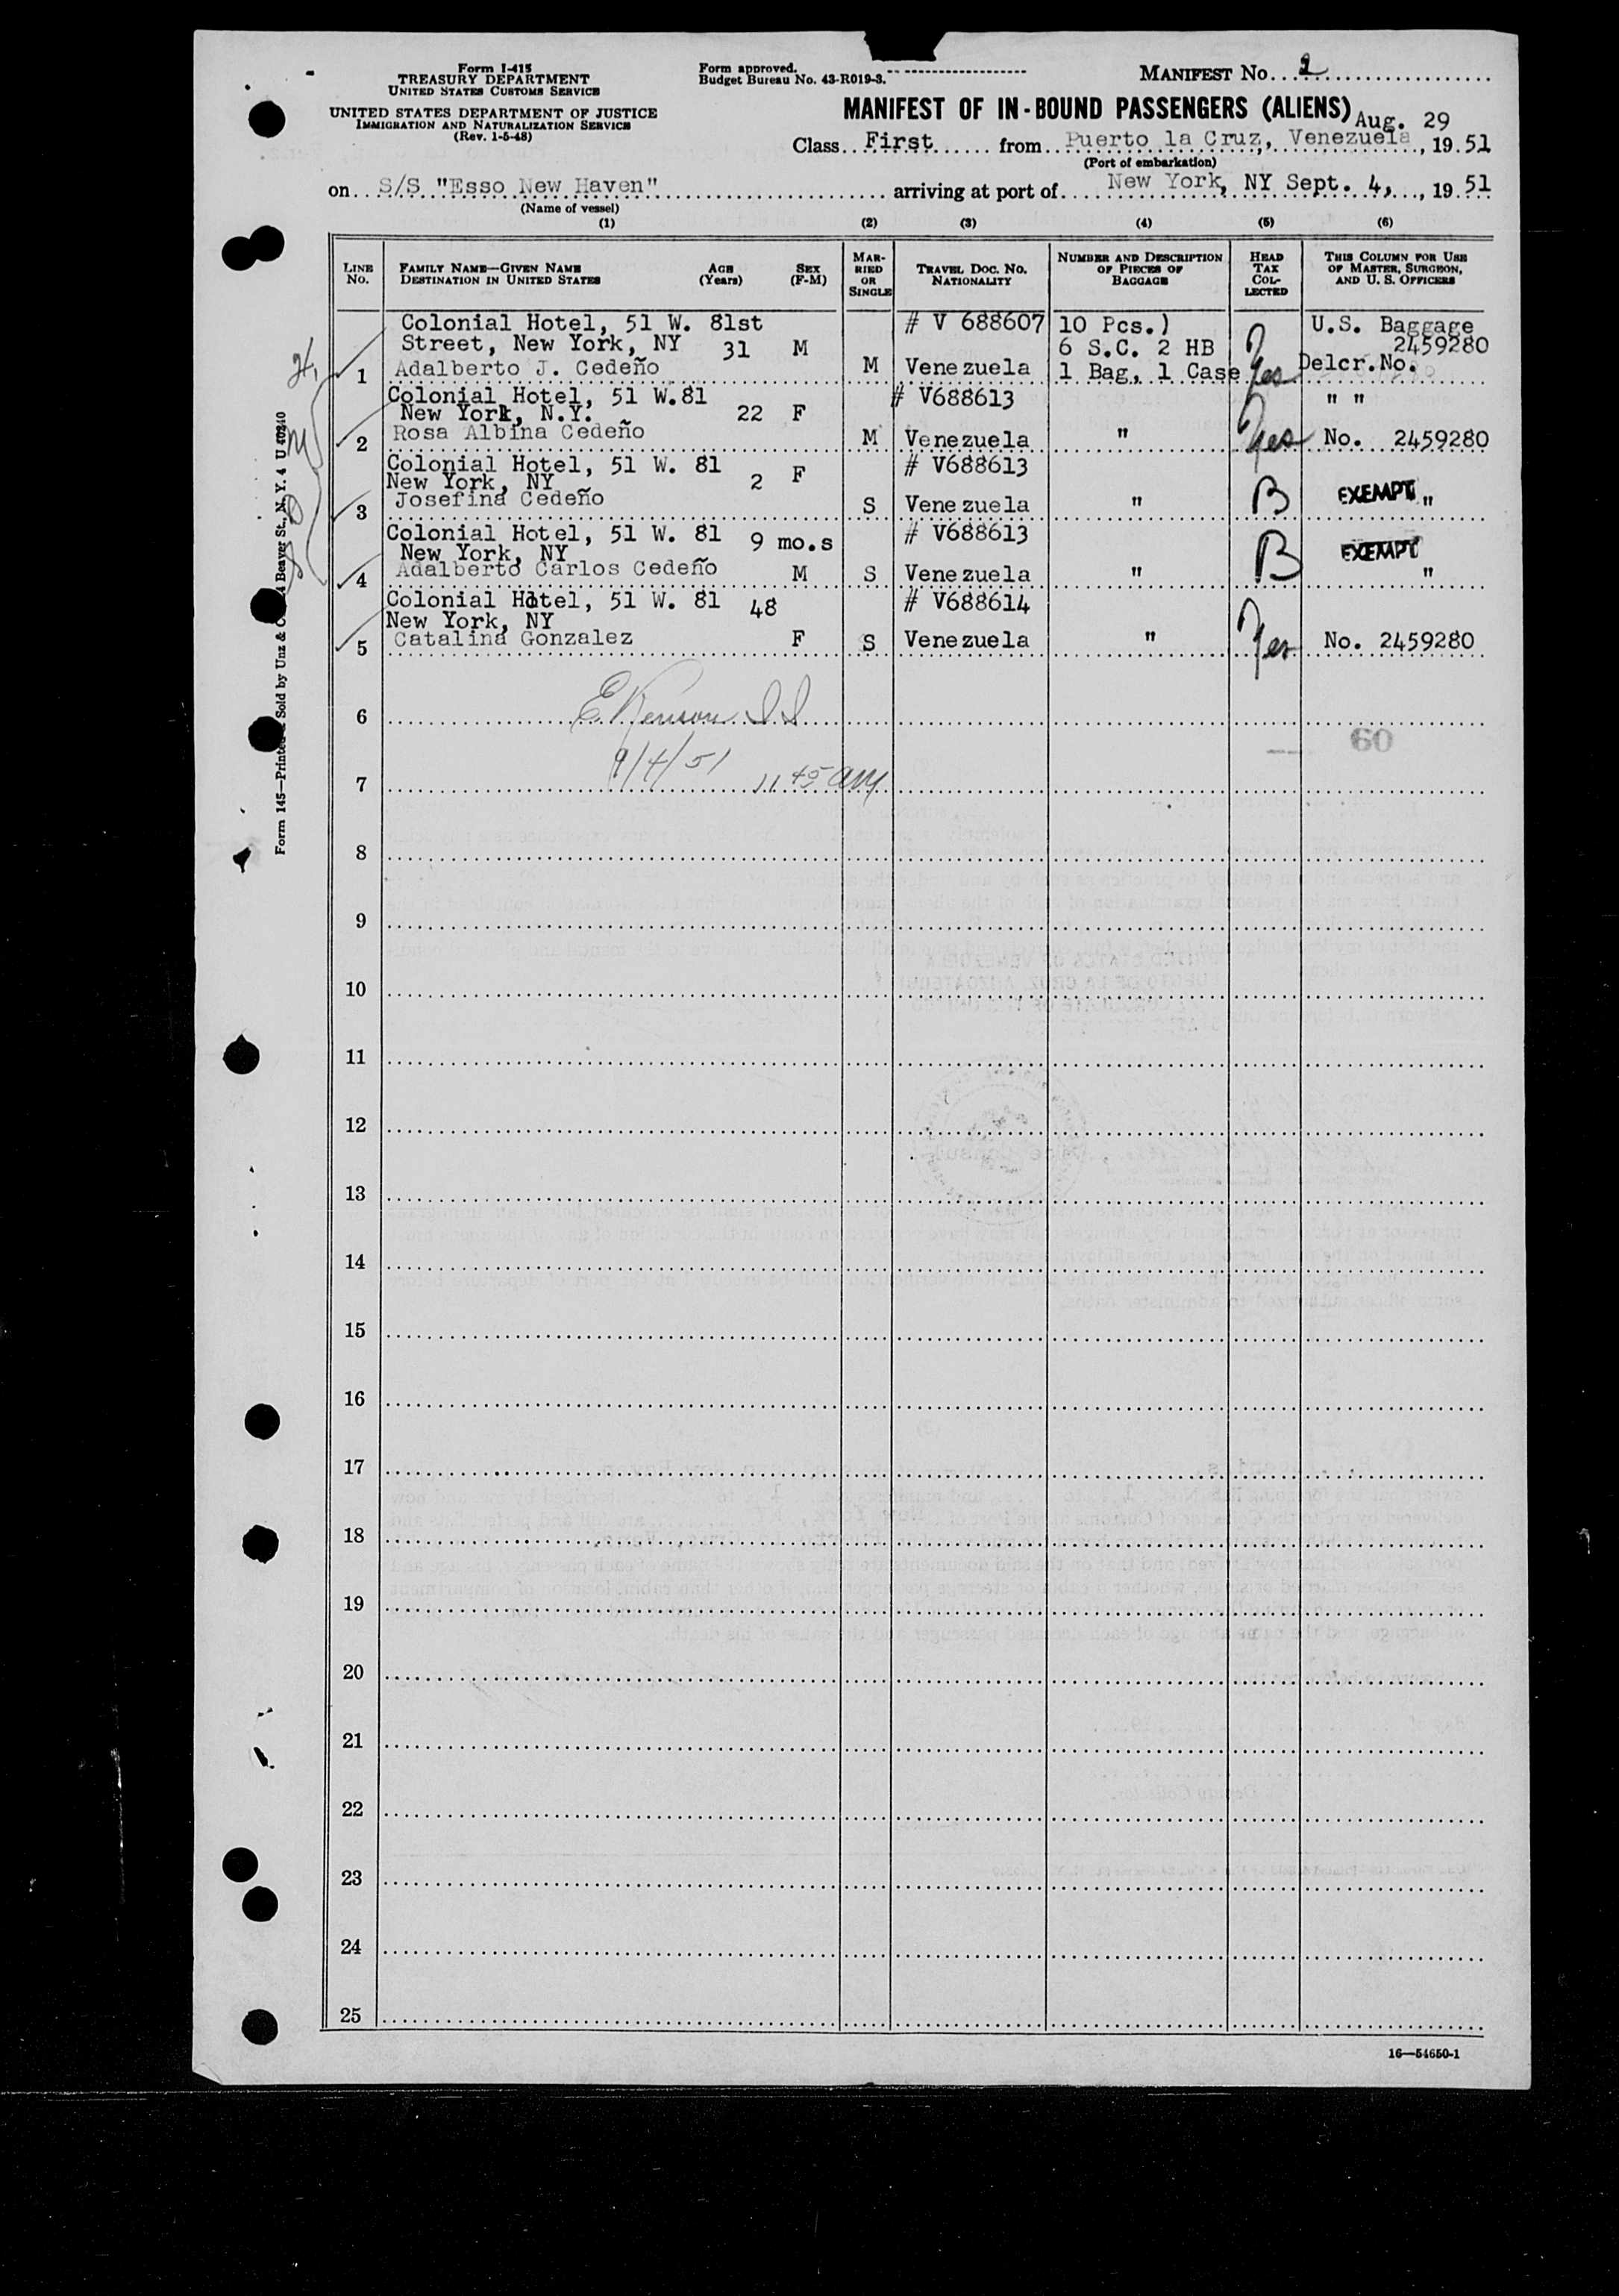 Form I-415
TREASURY DEPARTMENT
UNITED STATES CUSTOMS SERVICE
UNITED STATES DEPARTMENT OF JUSTICE
IMMIGRATION AND NATURALIZATION SERVICE
(Rev. 1-5-48)
Form approved.
Budget Bureau No. 43-R019-3.
MANIFEST No. 2
MANIFEST OF IN-BOUND PASSENGERS (ALIENS) Aug. 29
Class First from Puerto la Cruz, Venezuela, 19 51
(Port of embarkation)
on S/S "Esso New Haven" arriving at port of New York, NY Sept. 4, 19 51
(Name of vessel)
(1) (2) (3) (4) (5) (6)
LINE No. FAMILY NAME—GIVEN NAME DESTINATION IN UNITED STATES AGE (Years) SEX (F-M) MARRIED OR SINGLE TRAVEL DOC. NO. NATIONALITY NUMBER AND DESCRIPTION OF PIECES OF BAGGAGE HEAD TAX COLLECTED THIS COLUMN FOR USE OF MASTER, SURGEON, AND U. S. OFFICERS
Colonial Hotel, 51 W. 81st # V 688607 10 Pcs.) U.S. Baggage
Street, New York, NY 31 M 6 S.C. 2 HB 2459280
1 Adalberto J. Cedeño M Venezuela 1 Bag, 1 Case Yes Delcr.No.
Colonial Hotel, 51 W.81 # V688613 " "
New York, N.Y. 22 F
2 Rosa Albina Cedeño M Venezuela " Yes No. 2459280
Colonial Hotel, 51 W. 81 # V688613
New York, NY 2 F
3 Josefina Cedeño S Venezuela " B EXEMPT "
Colonial Hotel, 51 W. 81 9 mo.s # V688613
New York, NY EXEMPT
4 Adalberto Carlos Cedeño M S Venezuela " B "
Colonial Hotel, 51 W. 81 48 # V688614
New York, NY
5 Catalina Gonzalez F S Venezuela " Yes No. 2459280
6
9/4/51 11 45 am
60
7
8
9
10
11
12
13
14
15
16
17
18
19
20
21
22
23
24
25
16—54650-1
Form 145—Printed & Sold by Unz & Beaver St., N. Y. 4